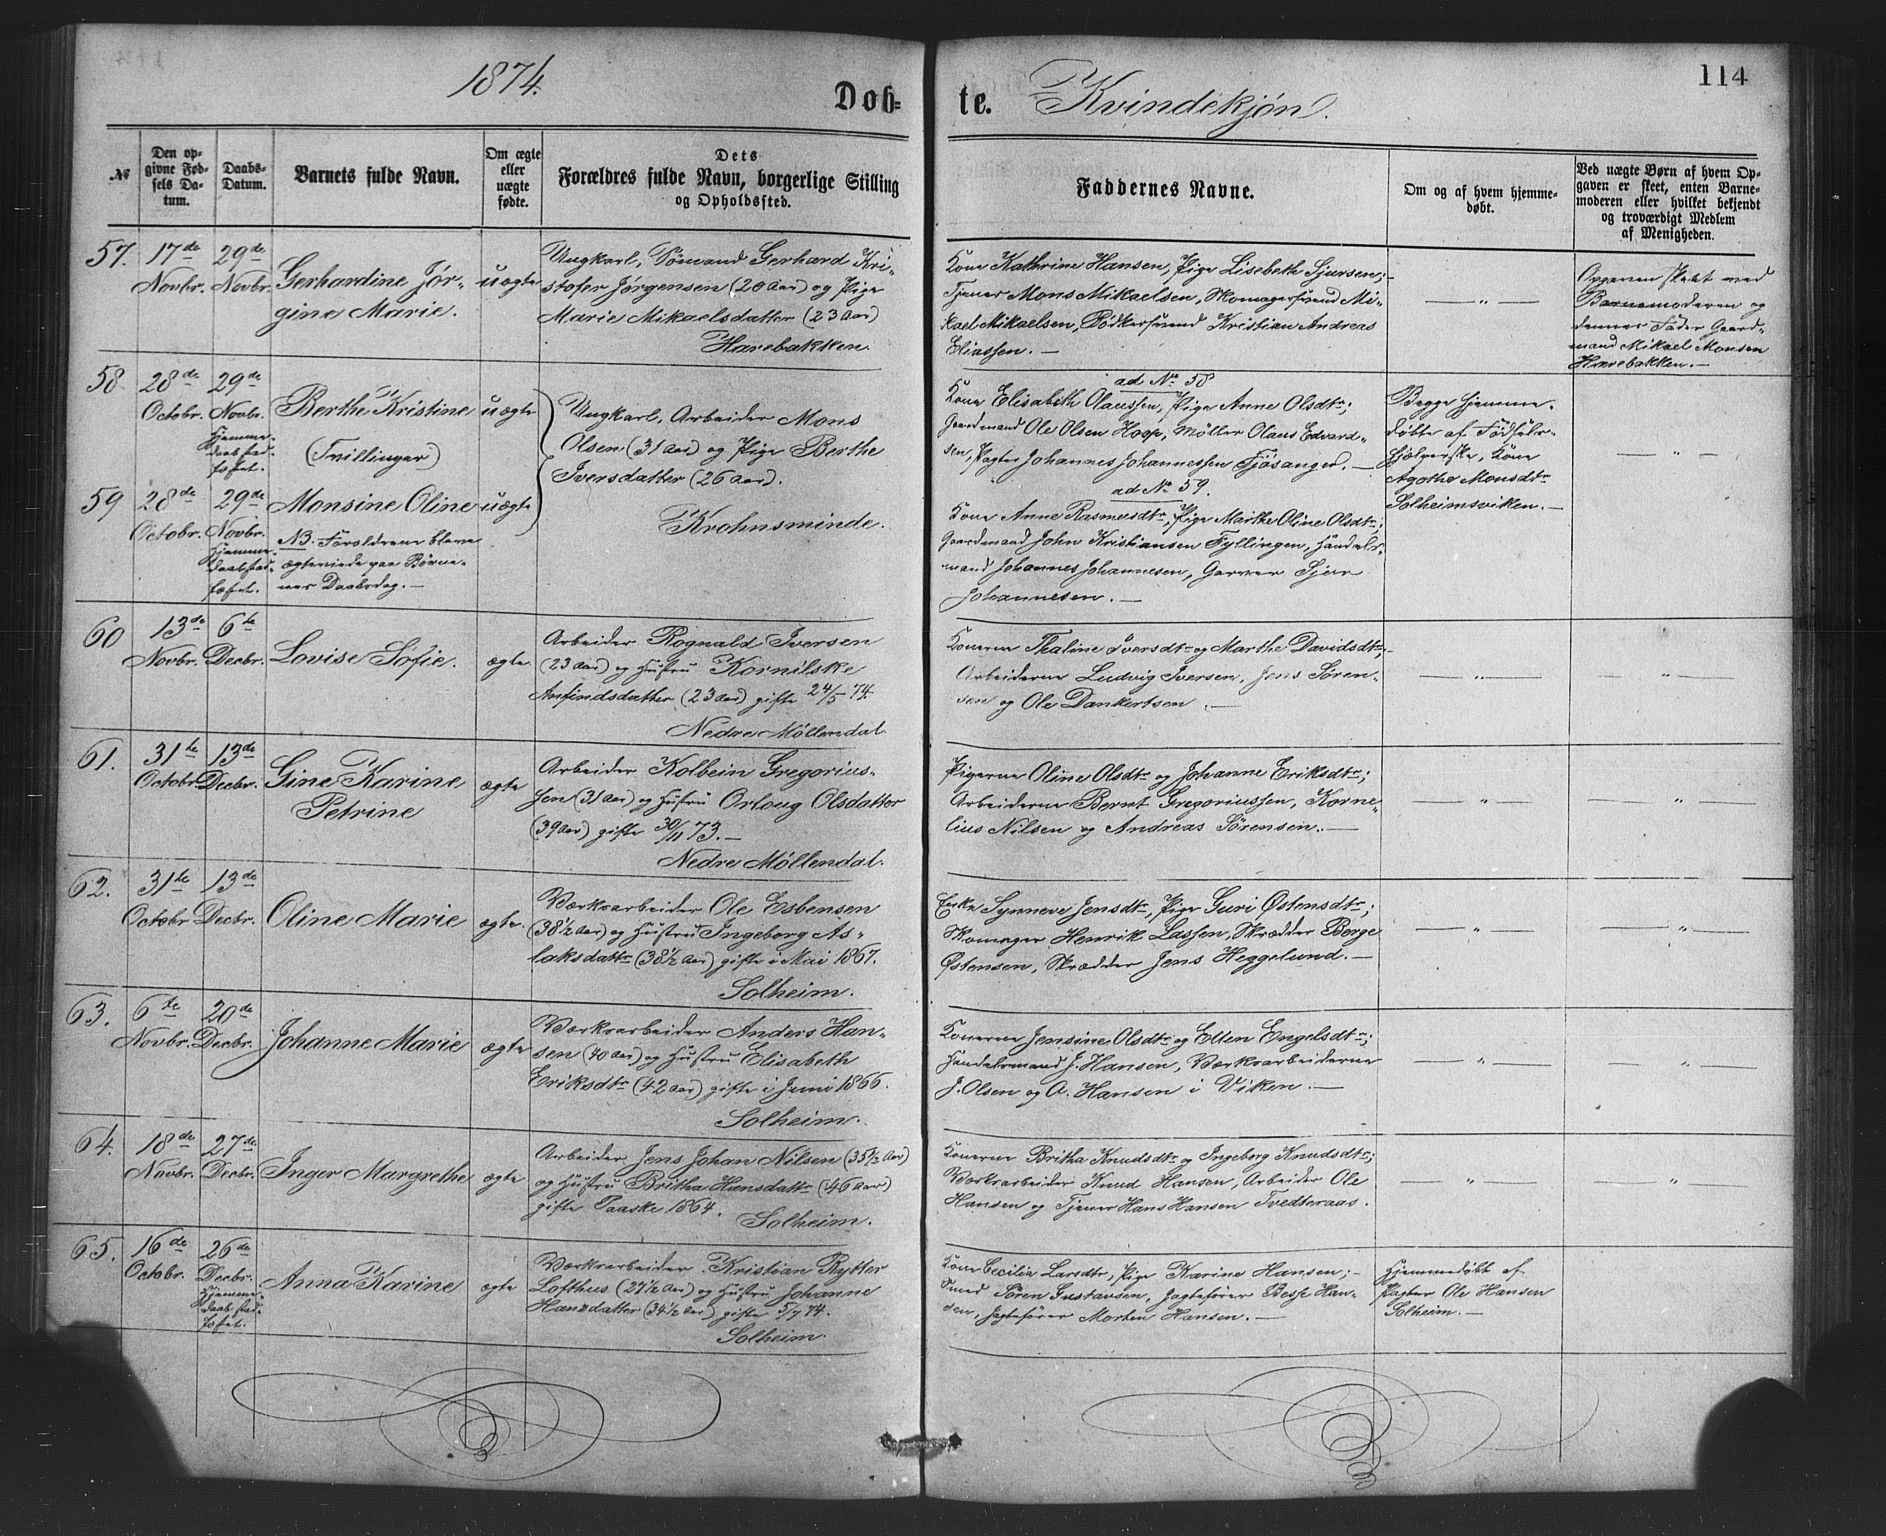 1874.
114
Døb=
te.
Kvindekjøn.
№
Den op-
givne Fød-
sels Da-
tum.
Daabs-
Datum.
Barnets fulde Navn.
Om ægte
eller
uægte
fødte.
Dets
Forældres fulde Navn, borgerlige Stilling
og Opholdssted.
Faddernes Navne.
Om og af hvem hjemme-
døbt.
Ved uægte Børn af hvem Op-
gaven er skeet, enten Barne-
moderen eller hvilket bekjendt
og troværdigt Medlem
af Menigheden.
57.
17de
Novbr.
29de
Novbr.
Gerhardine Jør-
gine Marie.
uægte
Ungkarl, Sømand Gerhard Kri-
stofer Jørgensen (20 Aar) og Pige
Marie Mikaelsdatter (23 Aar)
Harebakken.
Kone Kathrine Hansen, Pige Lisebeth Sjursen;
Tjener Mons Mikaelsen, Skomagersvend Mi-
kael Mikaelsen, Bødkersvend Kristian Andreas
Eliassen. —
— „ —
Opgaven skeet ved
Barnemoderen og
dennes Fader Gaard-
mand Mikael Monsen
Harebakken. —
58.
28de
Octobr.
29de
Novbr.
Hjemme-
daab stad-
fæstet.
Berthe Kristine
(Tvillinger)
uægte
Ungkarl, Arbeider Mons
Olsen (31 Aar) og Pige Berthe
Iversdatter (26 Aar).
Krohnsminde.
ad No 58
Kone Elisabeth Olaussen, Pige Anne Olsdtr;
Gaardmand Ole Olsen Hop, Møller Olaus Edvard-
sen, Pagter Johannes Johannessen Fjøsanger. —
Begge hjemme-
døbte af Fødsels-
hjelperske, Kone
Agathe Monsdtr
Solheimsviken. —
— „ —
59
28de
Octobr.
29de
Novbr.
Hjemme-
daab stad-
fæstet.
Monsine Oline
NB. Forældrene bleve
ægteviede paa Børne-
nes Daabsdag. —
uægte
ad No 59.
Kone Anne Rasmusdtr, Pige Marthe Oline Olsdtr;
Gaardmand John Kristiansen Fyllingen, Handels-
mand Johannes Johannesen, Garver Sjur
Johannesen. —
60
13de
Novbr.
6te
Decbr.
Lovise Sofie.
ægte
Arbeider Rognald Iversen
(23 Aar) og Hustru Kornilske
Anfindsdatter (23 Aar) gifte 24/5 74.
Nedre Møllendal
Konerne Thaline Iversdtr og Marthe Davidsdtr;
Arbeiderne Ludvig Iversen, Jens Søren-
sen og Ole Dankertsen. —
— „ —
— „ —
61.
31te
Octobr.
13de
Decbr.
Gine Karine
Petrine
ægte
Arbeider Kolbein Gregorius-
sen (31 Aar) og Hustru Orloug Olsdatter
(39 Aar) gifte 30/11 73. —
Nedre Møllendal.
Pigerne Oline Olsdtr og Johanne Eriksdtr;
Arbeiderne Bernt Gregoriussen, Korne-
lius Nilsen og Andreas Sørensen. —
— „ —
— „ —
62.
31te
Octobr
13de
Decbr.
Oline Marie
ægte
Værksarbeider Ole Esbensen
(38½ Aar) og Hustru Ingeborg As-
laksdattr (38½ Aar) gifte i Mai 1867.
Solheim.
Enke Synneve Jensdtr, Pige Guri Østensdtr;
Skomager Henrik Lassen, Skrædder Berge
Østensen, Skrædder Jens Heggelund. —
— „ —
— „ —
63.
6te
Novbr.
20de
Decbr.
Johanne Marie
ægte
Værksarbeider Anders Han-
sen (40 Aar) og Hustru Elisabeth
Eriksdtr (42 Aar) gifte i Juni 1866.
Solheim.
Konerne Jensine Olsdtr og Ellen Engelsdtr;
Handelsmand J. Hansen, Værksarbeiderne
J. Olsen og A. Hansen i Viken. —
— „ —
— „ —
64.
18de
Novbr.
27de
Decbr.
Inger Margrethe
ægte
Arbeider Jens Johan Nilsen (35½ Aar)
og Hustru Britha Hansdattr (46 Aar)
gifte Paaske 1864.
Solheim.
Konerne Britha Knudsdtr og Ingeborg Knudsdtr;
Værksarbeider Knud Hansen, Arbeider Ole
Hansen og Tjener Hans Hansen Tvedteraas.
— „ —
— „ —
65.
16de
Octobr.
26de
Decbr.
Hjemme-
daab stad-
fæstet.
Anna Karine
ægte
Værksarbeider Kristian Rytter
Lofthus (27½ Aar) og Hustru Johanne
Hansdatter (34½ Aar) gifte 5/7 74.
Solheim.
Kone Cecilia Larsdtr, Pige Karine Hansen; —
Smed Søren Gustavsen, Jagtefører Besse Han-
sen, Jagtefører Morten Hansen. —
Hjemmedøbt af
Pagter Ole Hansen
Solheim. —